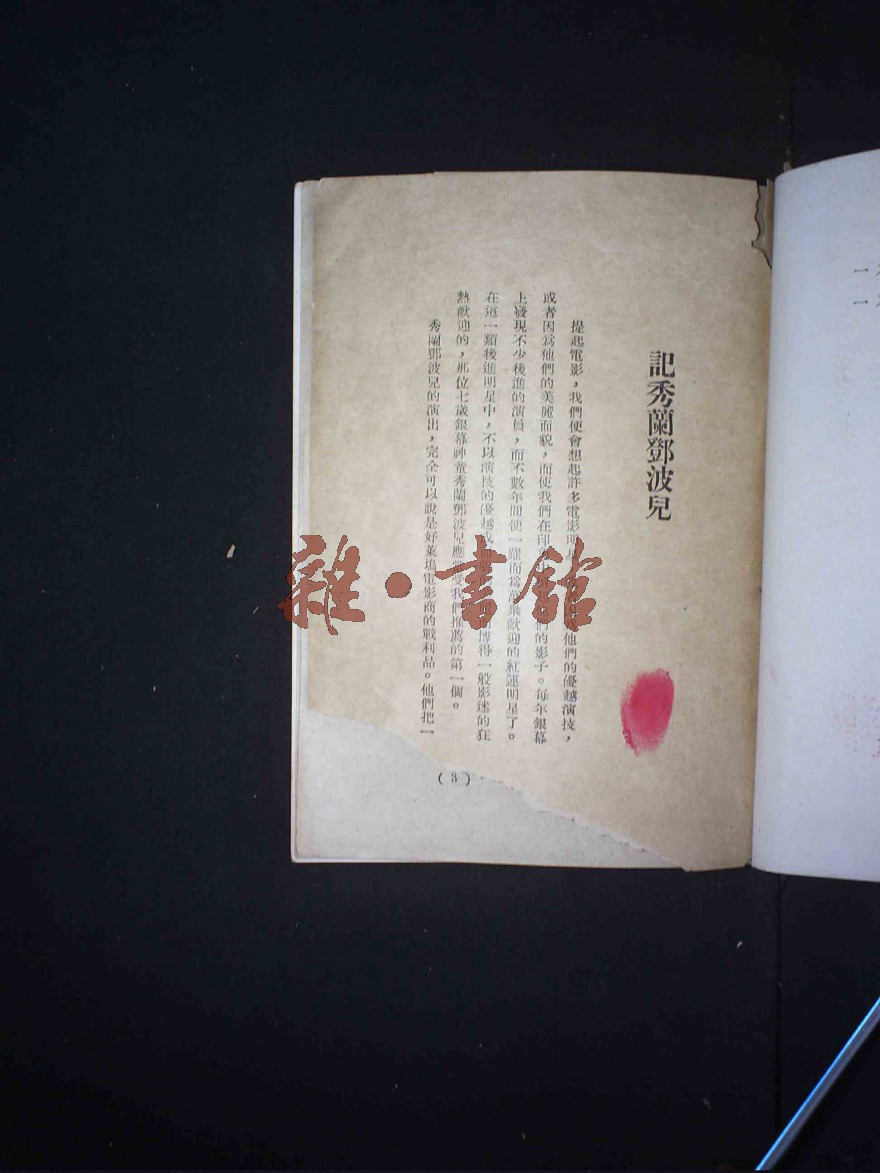 記秀蘭鄧波兒
提起電影，我們便會想起許多電影明星，他們的優越演技，
或者因爲他們的美麗面貌，而使我們在印們的影子。每年銀幕
上發現不少後進的演員，而不數年間便一躍而爲萬衆歡迎的紅運明星了。
在這一類後進明星中，不以演技的優越博得一般影迷的狂
熱歡迎的，那位七歲銀幕神童秀蘭鄧波兒應當受我們推薦的第一個。
秀蘭鄧波兒的演出，完全可以說是好萊塢電影商的戰利品。他們把一
(3)
雜·書館